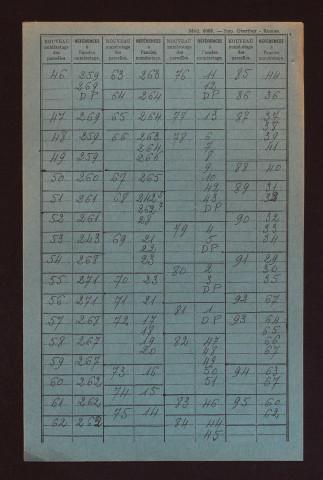 Mod. 6068. — Imp. Oberthur - Rennes
NOUVEAU numérotage des parcelles. RÉFÉRENCES à l'ancien numérotage.
46 259
269
DP
47 269
48 259
49 259
50 260
51 261
52 261
53 243
54 268
55 271
56 271
57 267
58 267
59 267
60 262
61 262
62 262
NOUVEAU numérotage des parcelles. RÉFÉRENCES à l'ancien numérotage.
63 263
64 264
65 264
66 263
264
266
67 265
68
28
69 21
22
23
70 23
71 21
72 17
18
19
20
73 16
74 15
75 14
NOUVEAU numérotage des parcelles. RÉFÉRENCES à l'ancien numérotage.
76 11
12
DP
77 13
78 6
7
8
9
10
42
43
DP
79 4
5
DP
80 2
3
DP
81 1
DP
82 47
48
49
50
51
83 46
84 44
45
NOUVEAU numérotage des parcelles. RÉFÉRENCES à l'ancien numérotage.
85 44
86 36
87 37
38
39
41
88 40
89 31
32
90 32
33
34
91 29
30
35
92 67
93 64
65
66
67
94 63
67
95 60
62